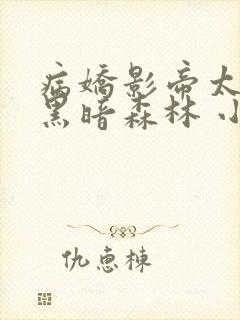 病嬌影帝太
黑暗森林 小
仇惠棟